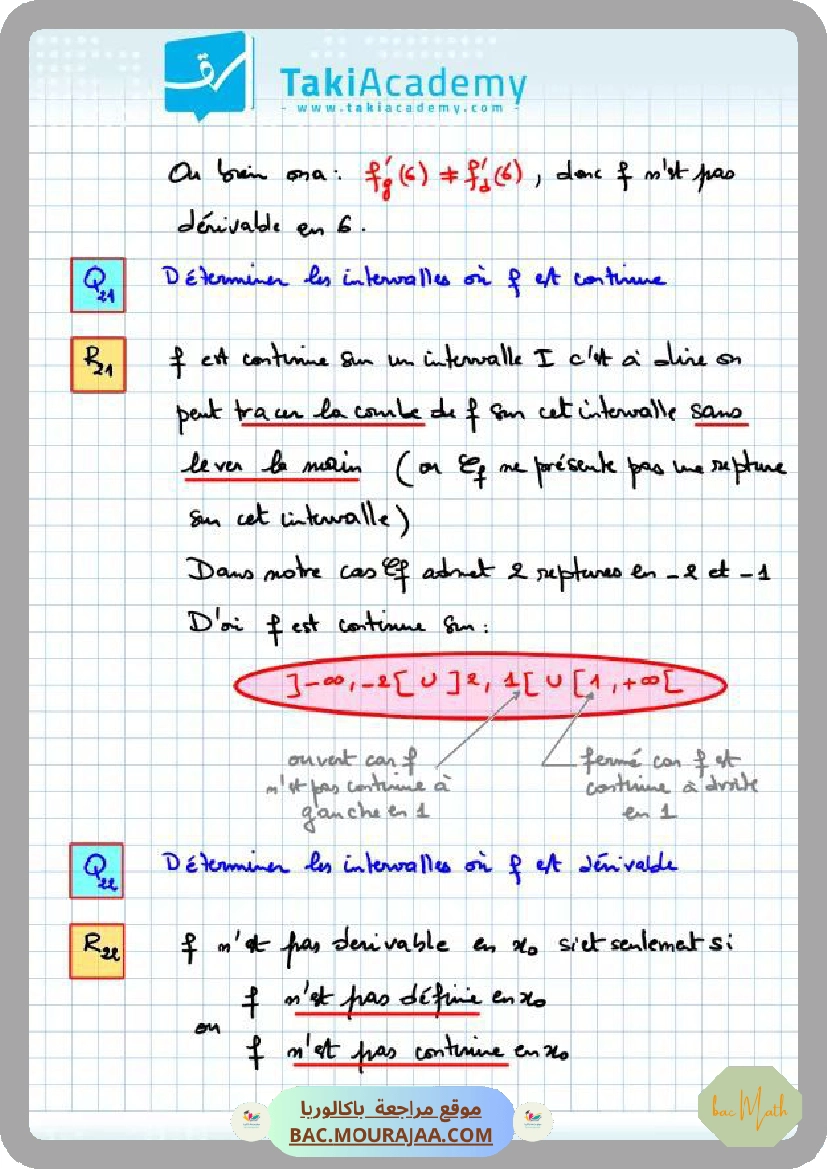 TakiAcademy
- www.takiacademy.com -
Ou bien on a : f'g(6) ≠ f'd(6), donc f n'est pas
dérivable en 6.
Q21 Déterminer les intervalles où f est continue
R21 f est continue sur un intervalle I c'est à dire on
peut tracer la courbe de f sur cet intervalle sans
lever la main (ou Cf ne présente pas une repture
sur cet intervalle)
Dans notre cas Cf admet 2 reptures en -2 et -1
D'où f est continue sur :
]-∞,-2[ ∪ ]2, 1[ ∪ [1,+∞[
ouvert car f
n'est pas continue à
gauche en 1
fermé car f est
continue à droite
en 1
Q22 Déterminer les intervalles où f est dérivable
R22 f n'est pas derivable en x0 si et seulemat si
f n'est pas définie en x0
ou
f n'est pas continue en x0
موقع مراجعة باكالوريا
BAC.MOURAJAA.COM
bac Math